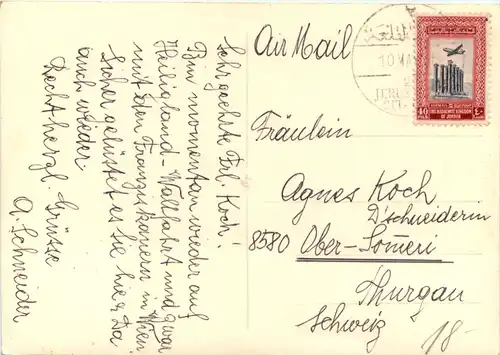 Sehr geehrte Frl. Koch!
Bin momentan wieder auf
Heiligland-Wallfahrt und zwar
mit den Franziskanern in Wien.
Sicher gelüstet es Sie hie & da
auch wieder
Recht herzl. Grüsse
A. Schneider
Air Mail
10 MA
JERU
40
FILS
THE HASHEMITE KINGDOM
OF JORDAN
Fräulein
Agnes Koch
D'schneiderin
8580 Ober-Someri
Thurgau
Schweiz
18-